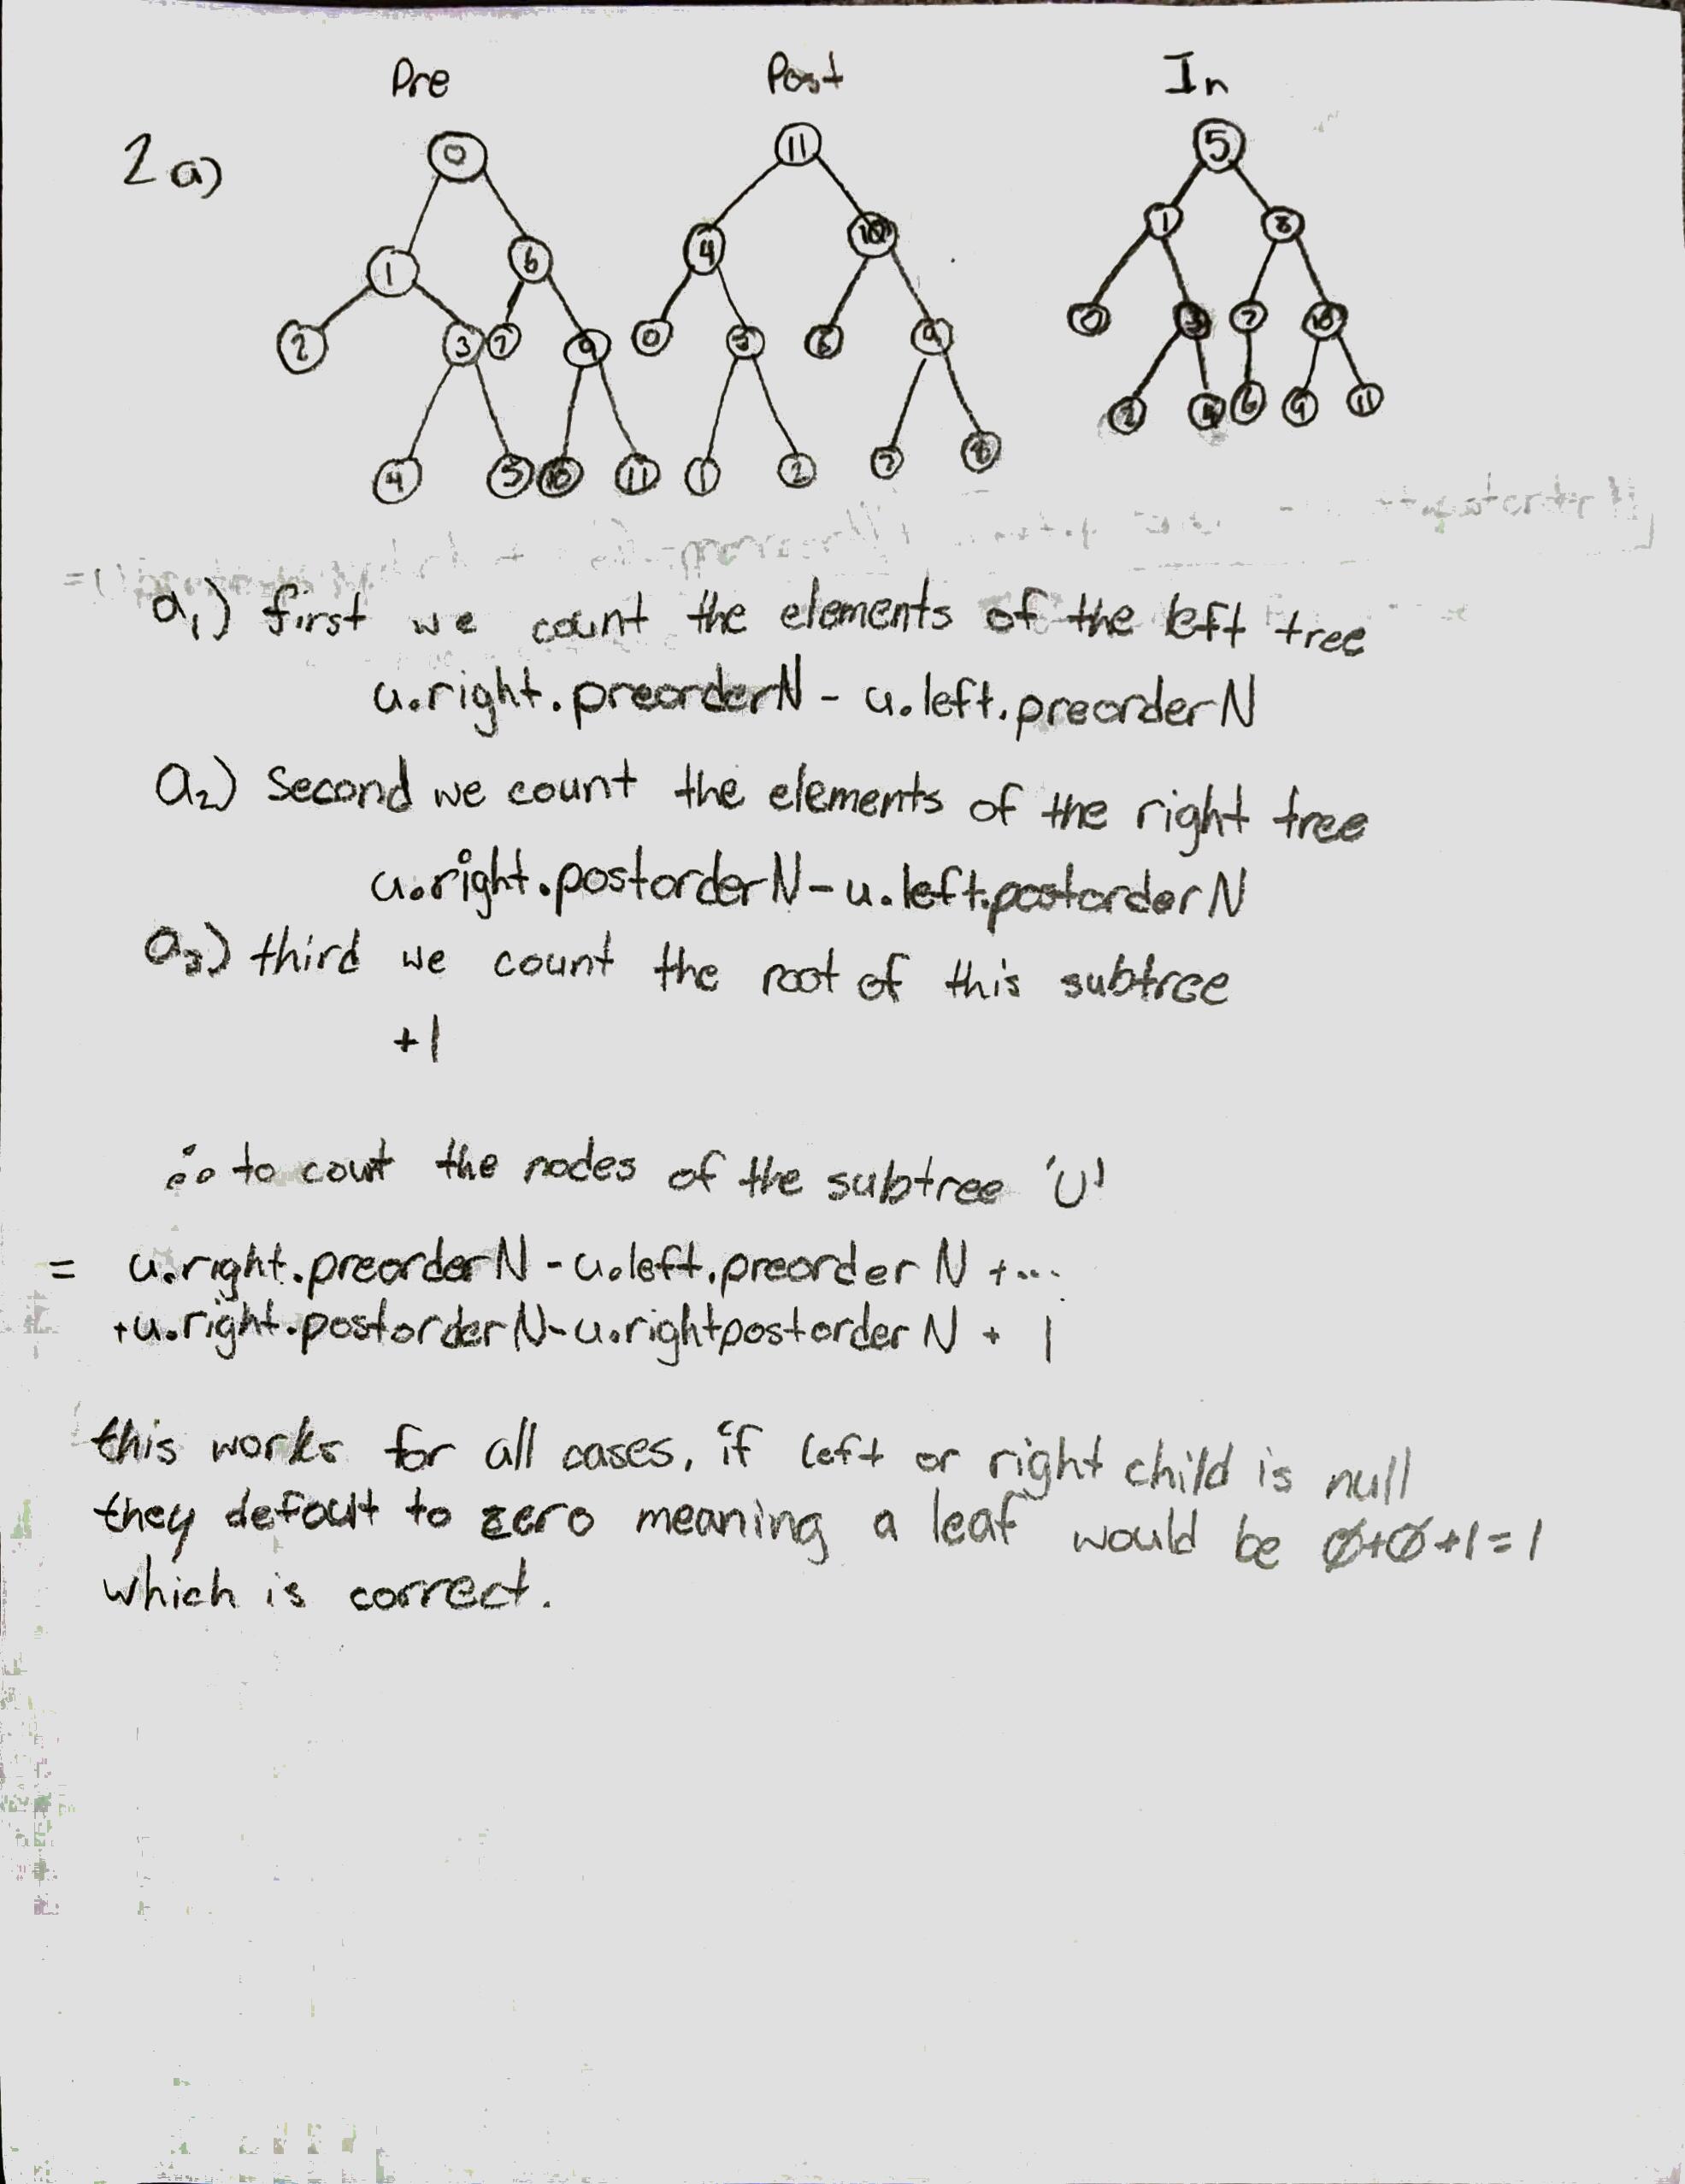 Pre Post In
2a)
0 11 5
1 6 4 10 1 8
2 3 7 9 0 3 6 9 0 3 7 10
4 5 10 11 1 2 7 8 2 4 6 9 11
a₁) first we count the elements of the left tree
u.right.preorderN - u.left.preorderN
a₂) Second we count the elements of the right tree
u.right.postorderN - u.left.postorderN
a₃) third we count the root of this subtree
+1
∴ to count the nodes of the subtree 'U'
= u.right.preorderN - u.left.preorderN +...
+u.right.postorderN - u.rightpostorderN + 1
this works for all cases, if left or right child is null
they defoult to zero meaning a leaf would be 0+0+1=1
which is correct.